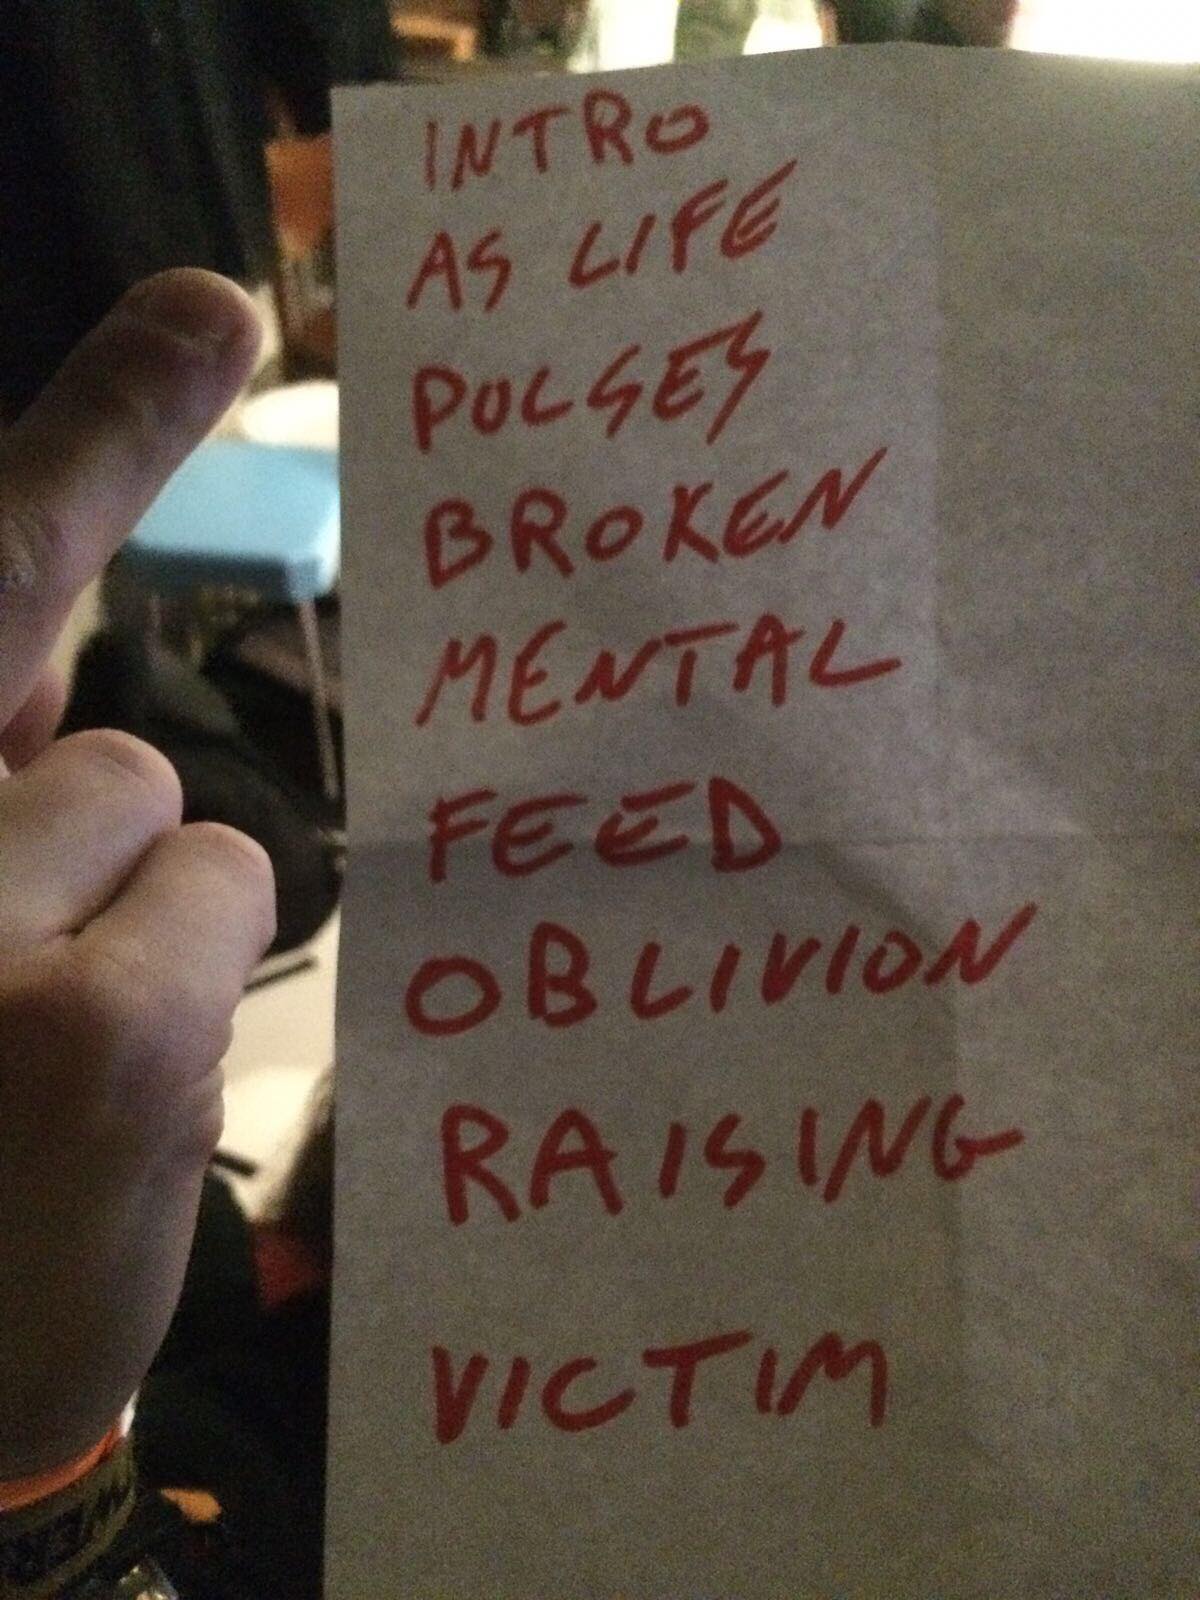 INTRO
AS LIFE
PULSES
BROKEN
MENTAL
FEED
OBLIVION
RAISING
VICTIM